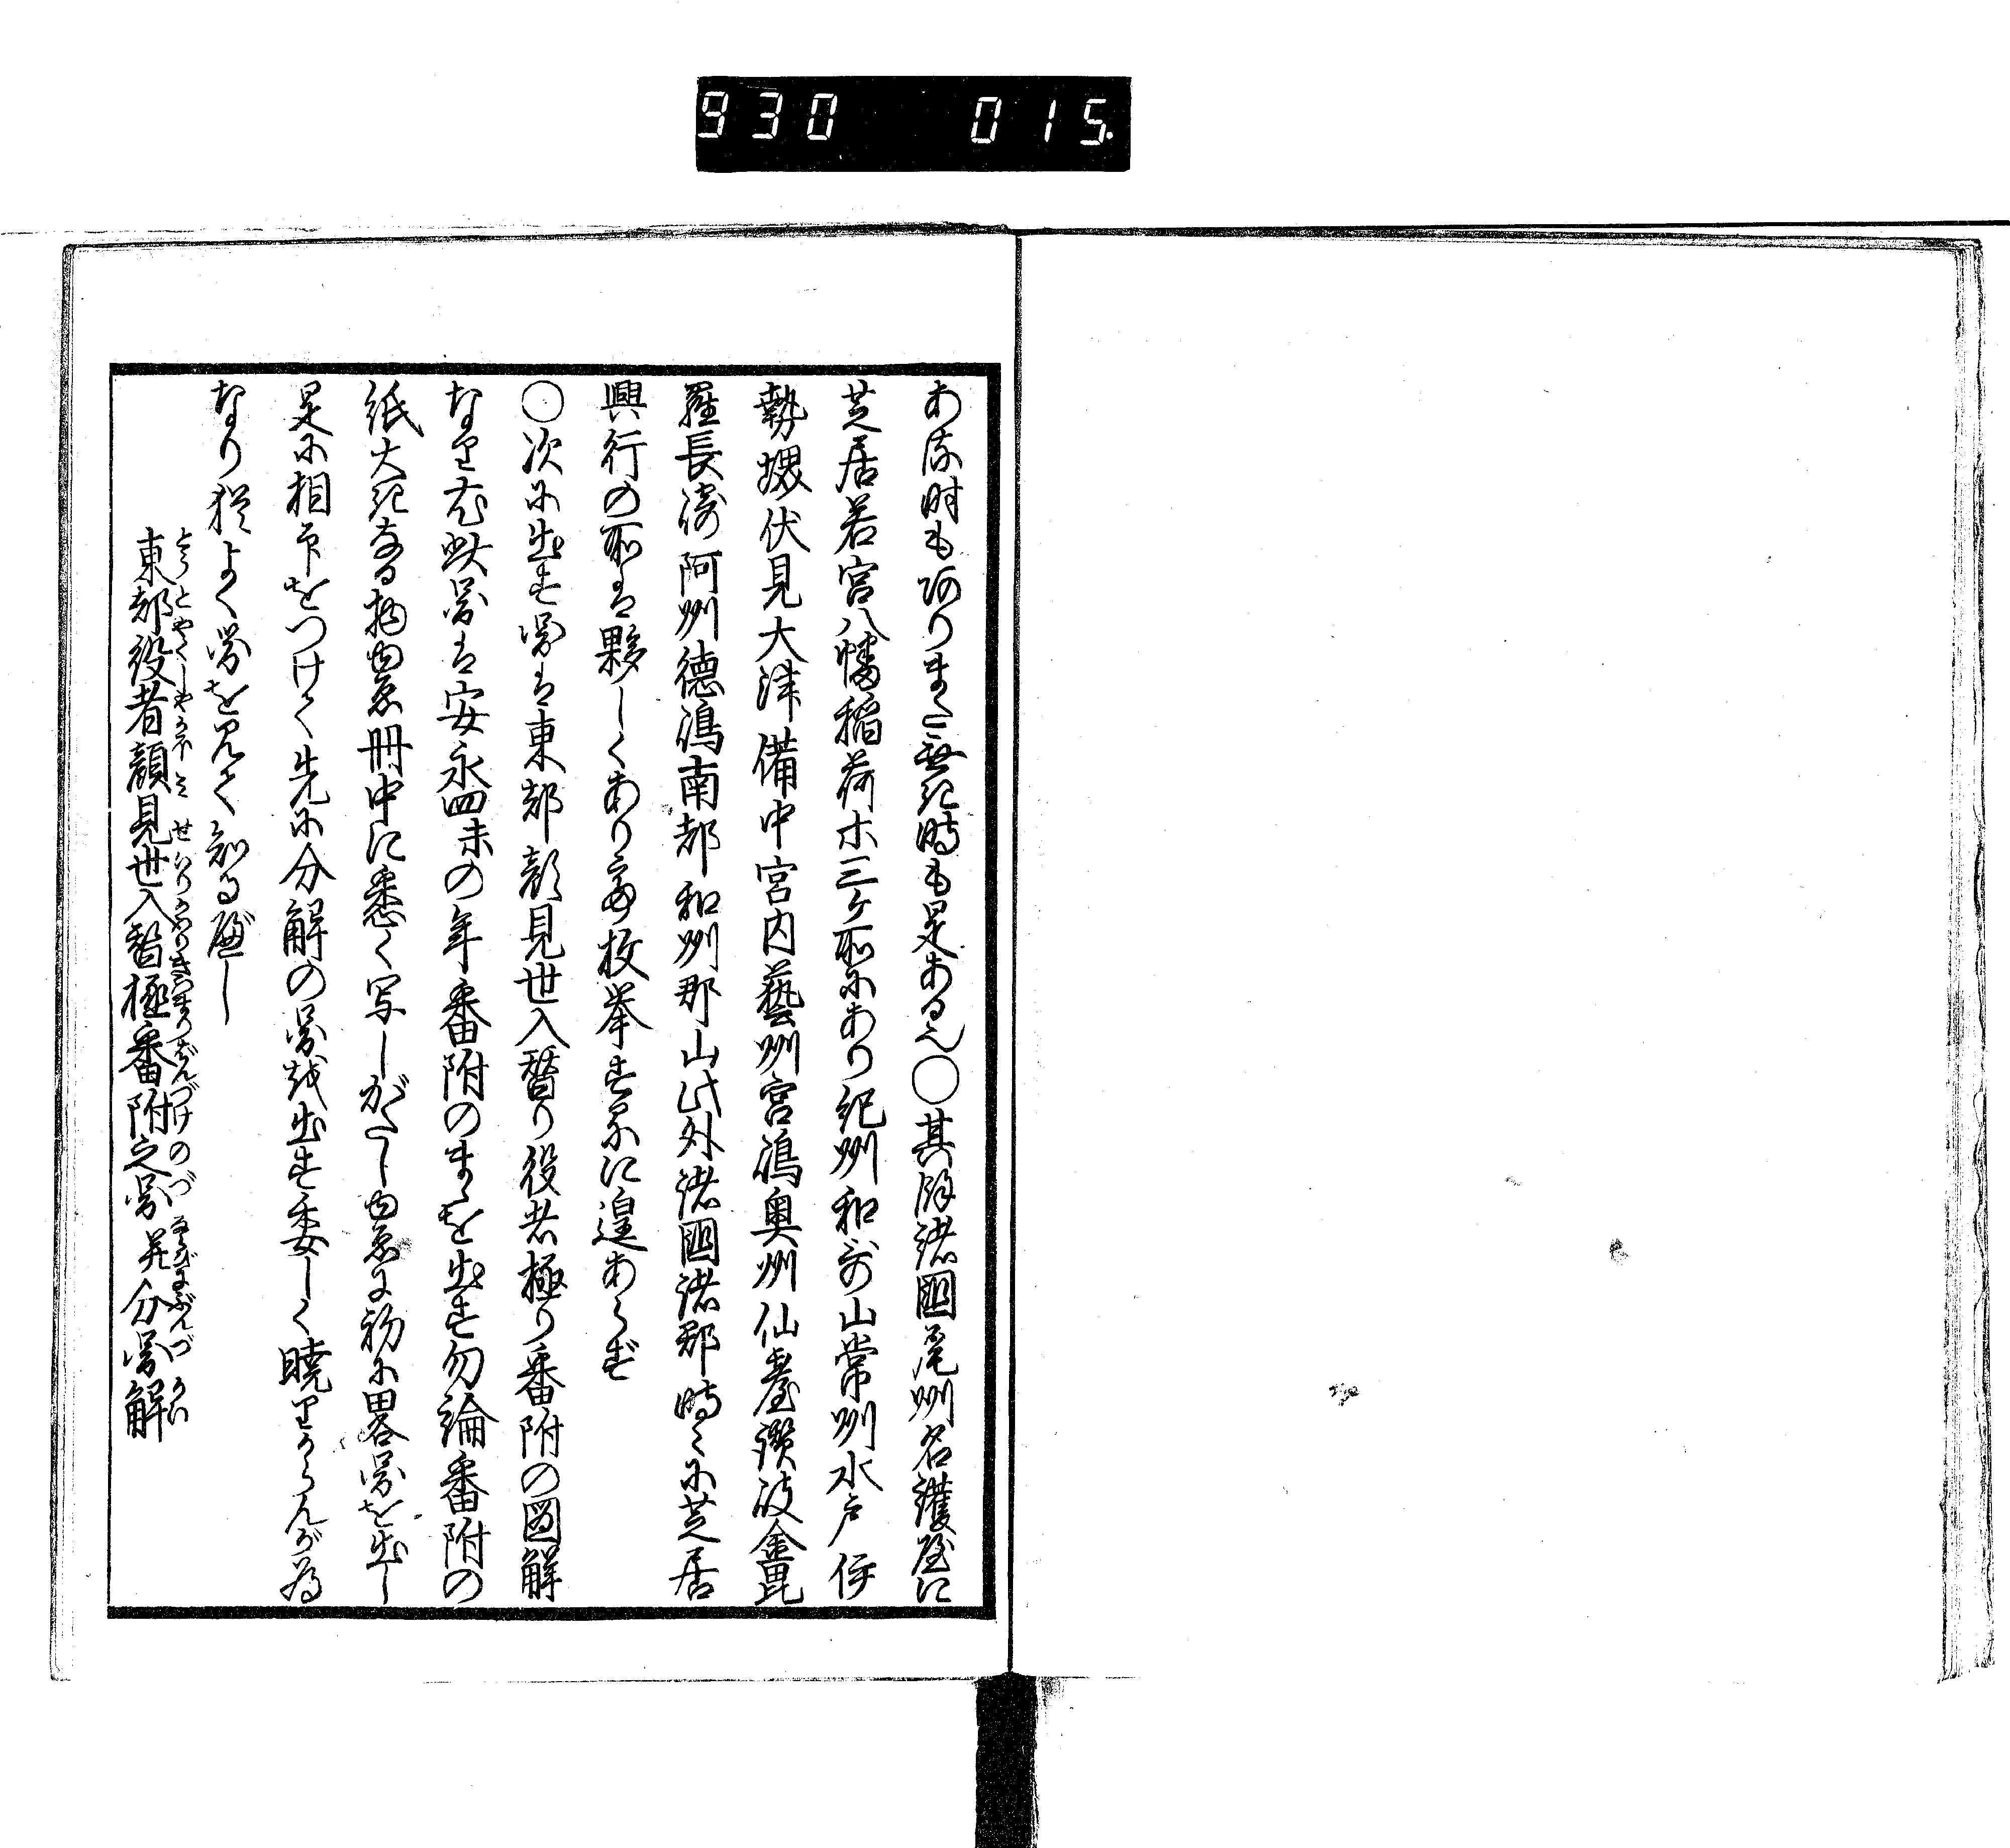 930 015.
ある時もありまた無き時も是ある也○其余諸國尾州名護屋に
芝居若宮八幡稲荷木三ケ所にあり紀州和哥山常州水戸伊
勢堺伏見大津備中宮内藝州宮嶋奥州仙臺讃岐金毘
羅長崎阿州徳嶋南都和州郡山此外諸國諸郡時々に芝居
興行の所は夥しくあり毎枚挙するに遑あらず
○次に出す圖は東都顔見世入替り役者極り番附の図解
なり尤此圖は安永四未の年番附のまゝを出す勿論番附の
紙大きなる物ゆゑ冊中に悉く写しがたしゆゑに初に畧圖を出し
是に相印をつけて先に分解の圖を出す委しく暁りやらんが為
なり猶よく圖を見て知るべし
東都役者顔見世入替極番附之圖并分圖解